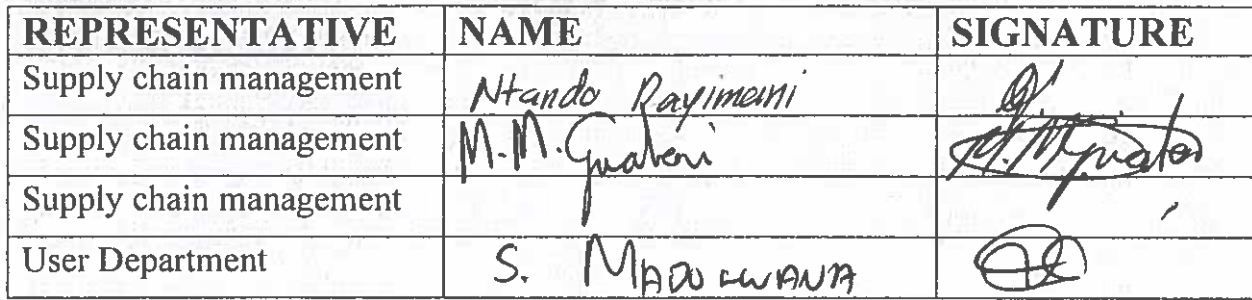 REPRESENTATIVE NAME SIGNATURE
Supply chain management Ntando Rayimeni
Supply chain management M.M.
Supply chain management
User Department S.